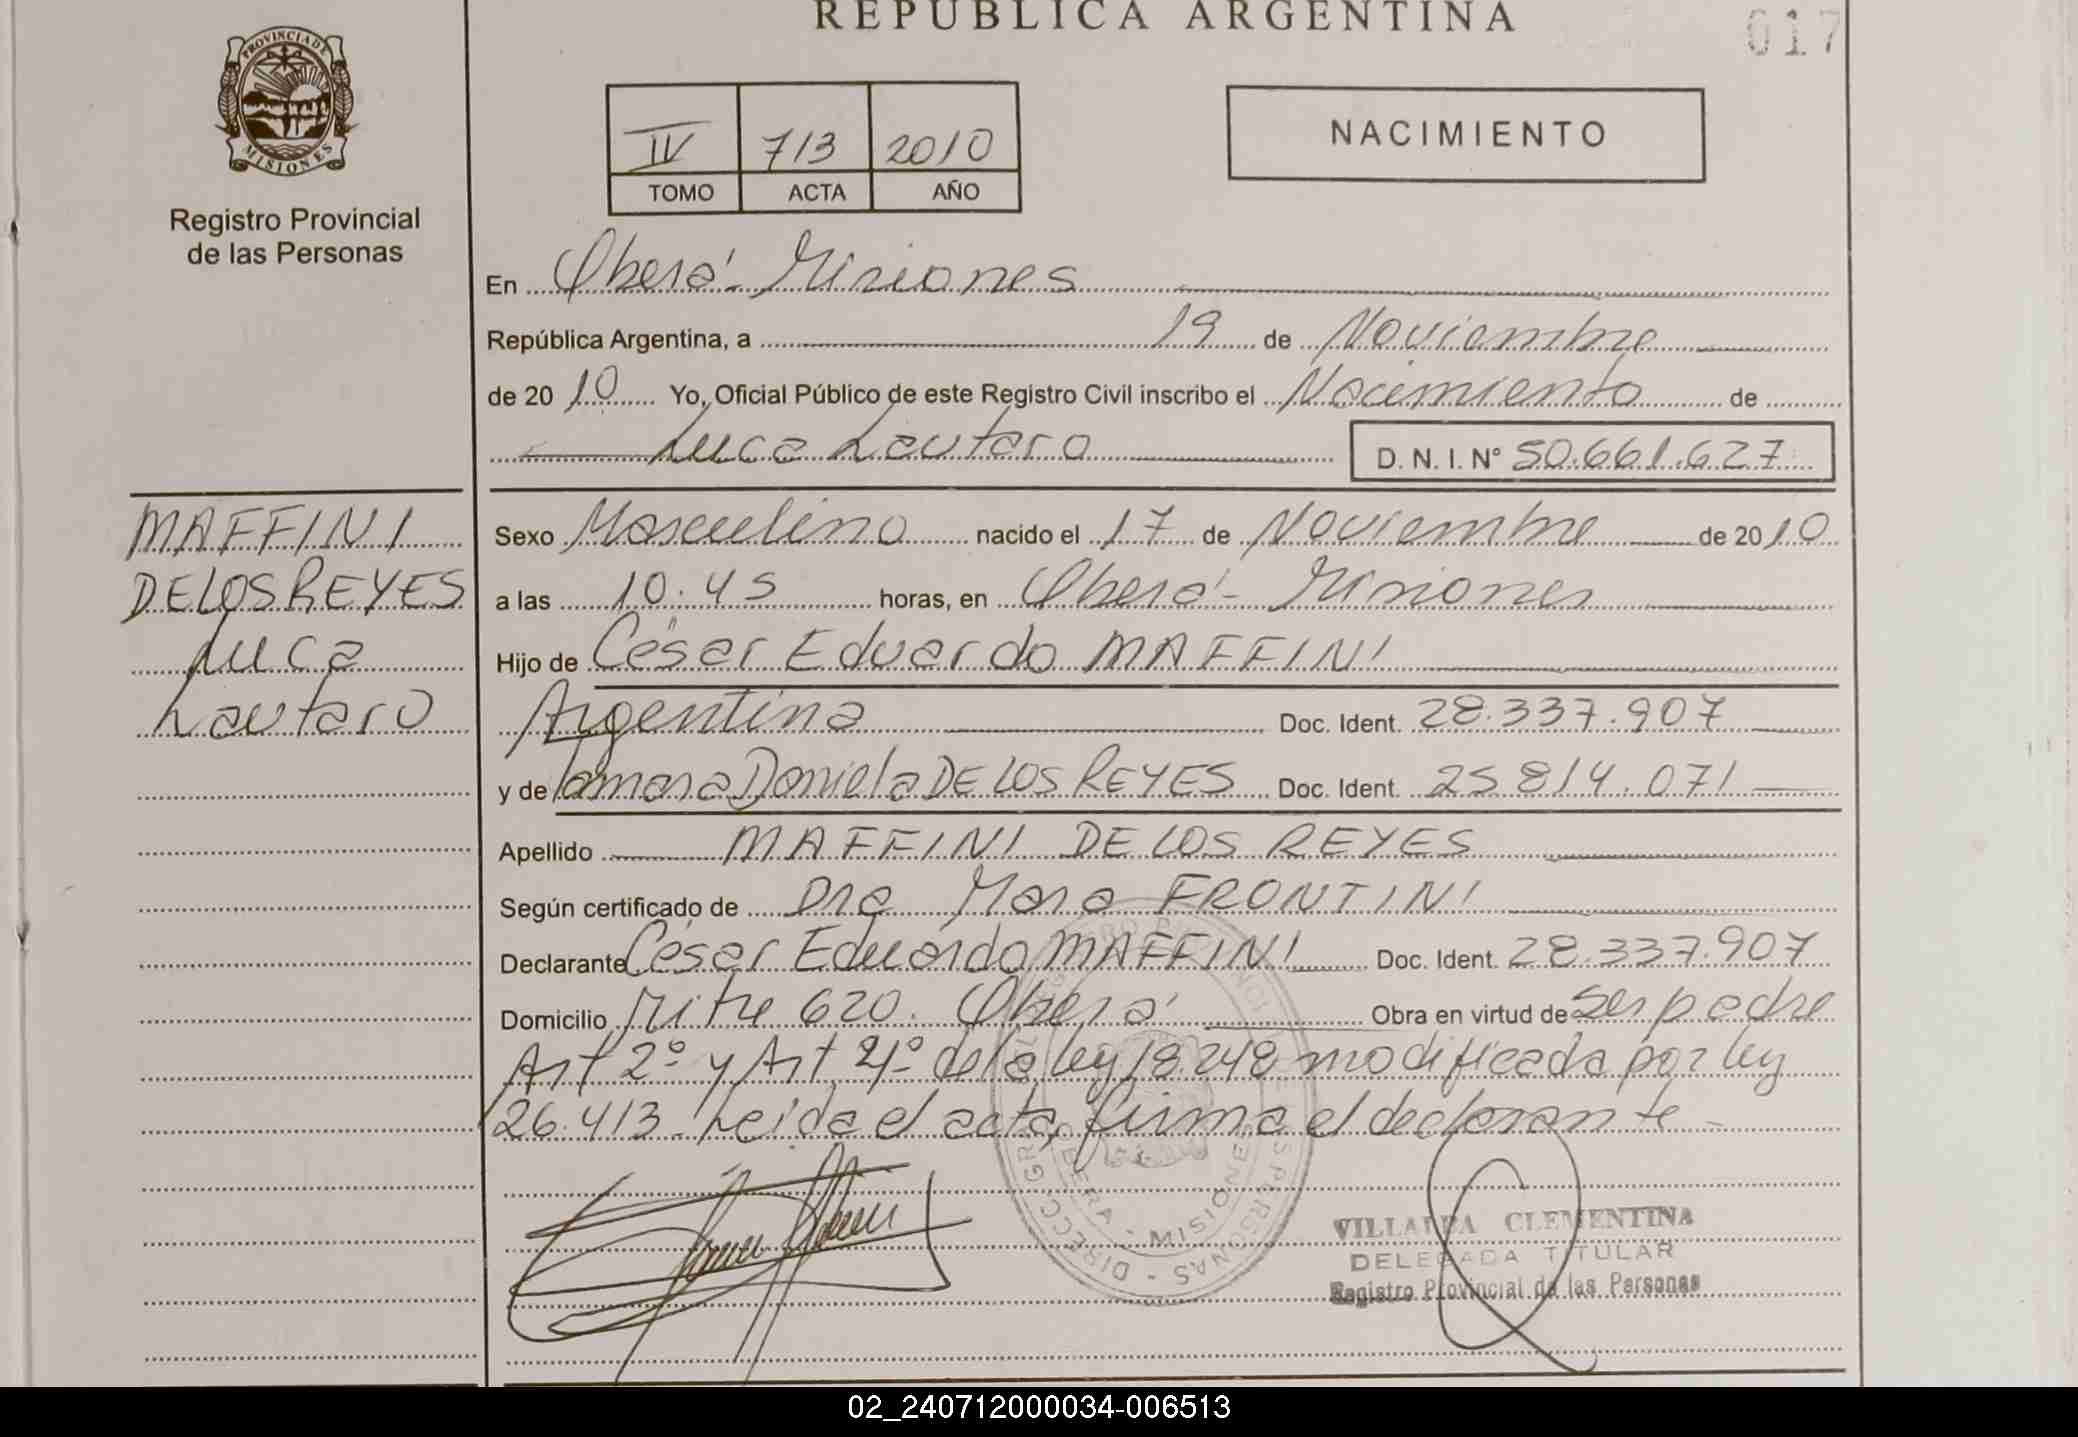 REPUBLICA ARGENTINA
017
PROVINCIA DE
MISIONES
Registro Provincial
de las Personas
IV 713 2010
TOMO ACTA AÑO
NACIMIENTO
En Oberá - Misiones
República Argentina, a 19 de Noviembre
de 2010 Yo, Oficial Público de este Registro Civil inscribo el Nacimiento de
Luca Lautaro D. N. I. N° 50.661.627
MAFFINI
DE LOS REYES
Luca
Lautaro
Sexo Masculino nacido el 17 de Noviembre de 2010
a las 10.45 horas, en Oberá - Misiones
Hijo de César Eduardo MAFFINI
Argentina Doc. Ident. 28.337.907
y de Tamara Daniela DE LOS REYES Doc. Ident. 25.814.071
Apellido MAFFINI DE LOS REYES
Según certificado de Dra Mara FRONTINI
Declarante César Eduardo MAFFINI Doc. Ident. 28.337.907
Domicilio Mitre 620. Oberá Obra en virtud de ser padre
Art 2° y Art 4° de la ley 18.248 modificada por ley
26.413. Leida el acta, firma el declarante -
OBERA - MISIONES
VILLALBA CLEMENTINA
DELEGADA TITULAR
Registro Provincial de las Personas
02_240712000034-006513